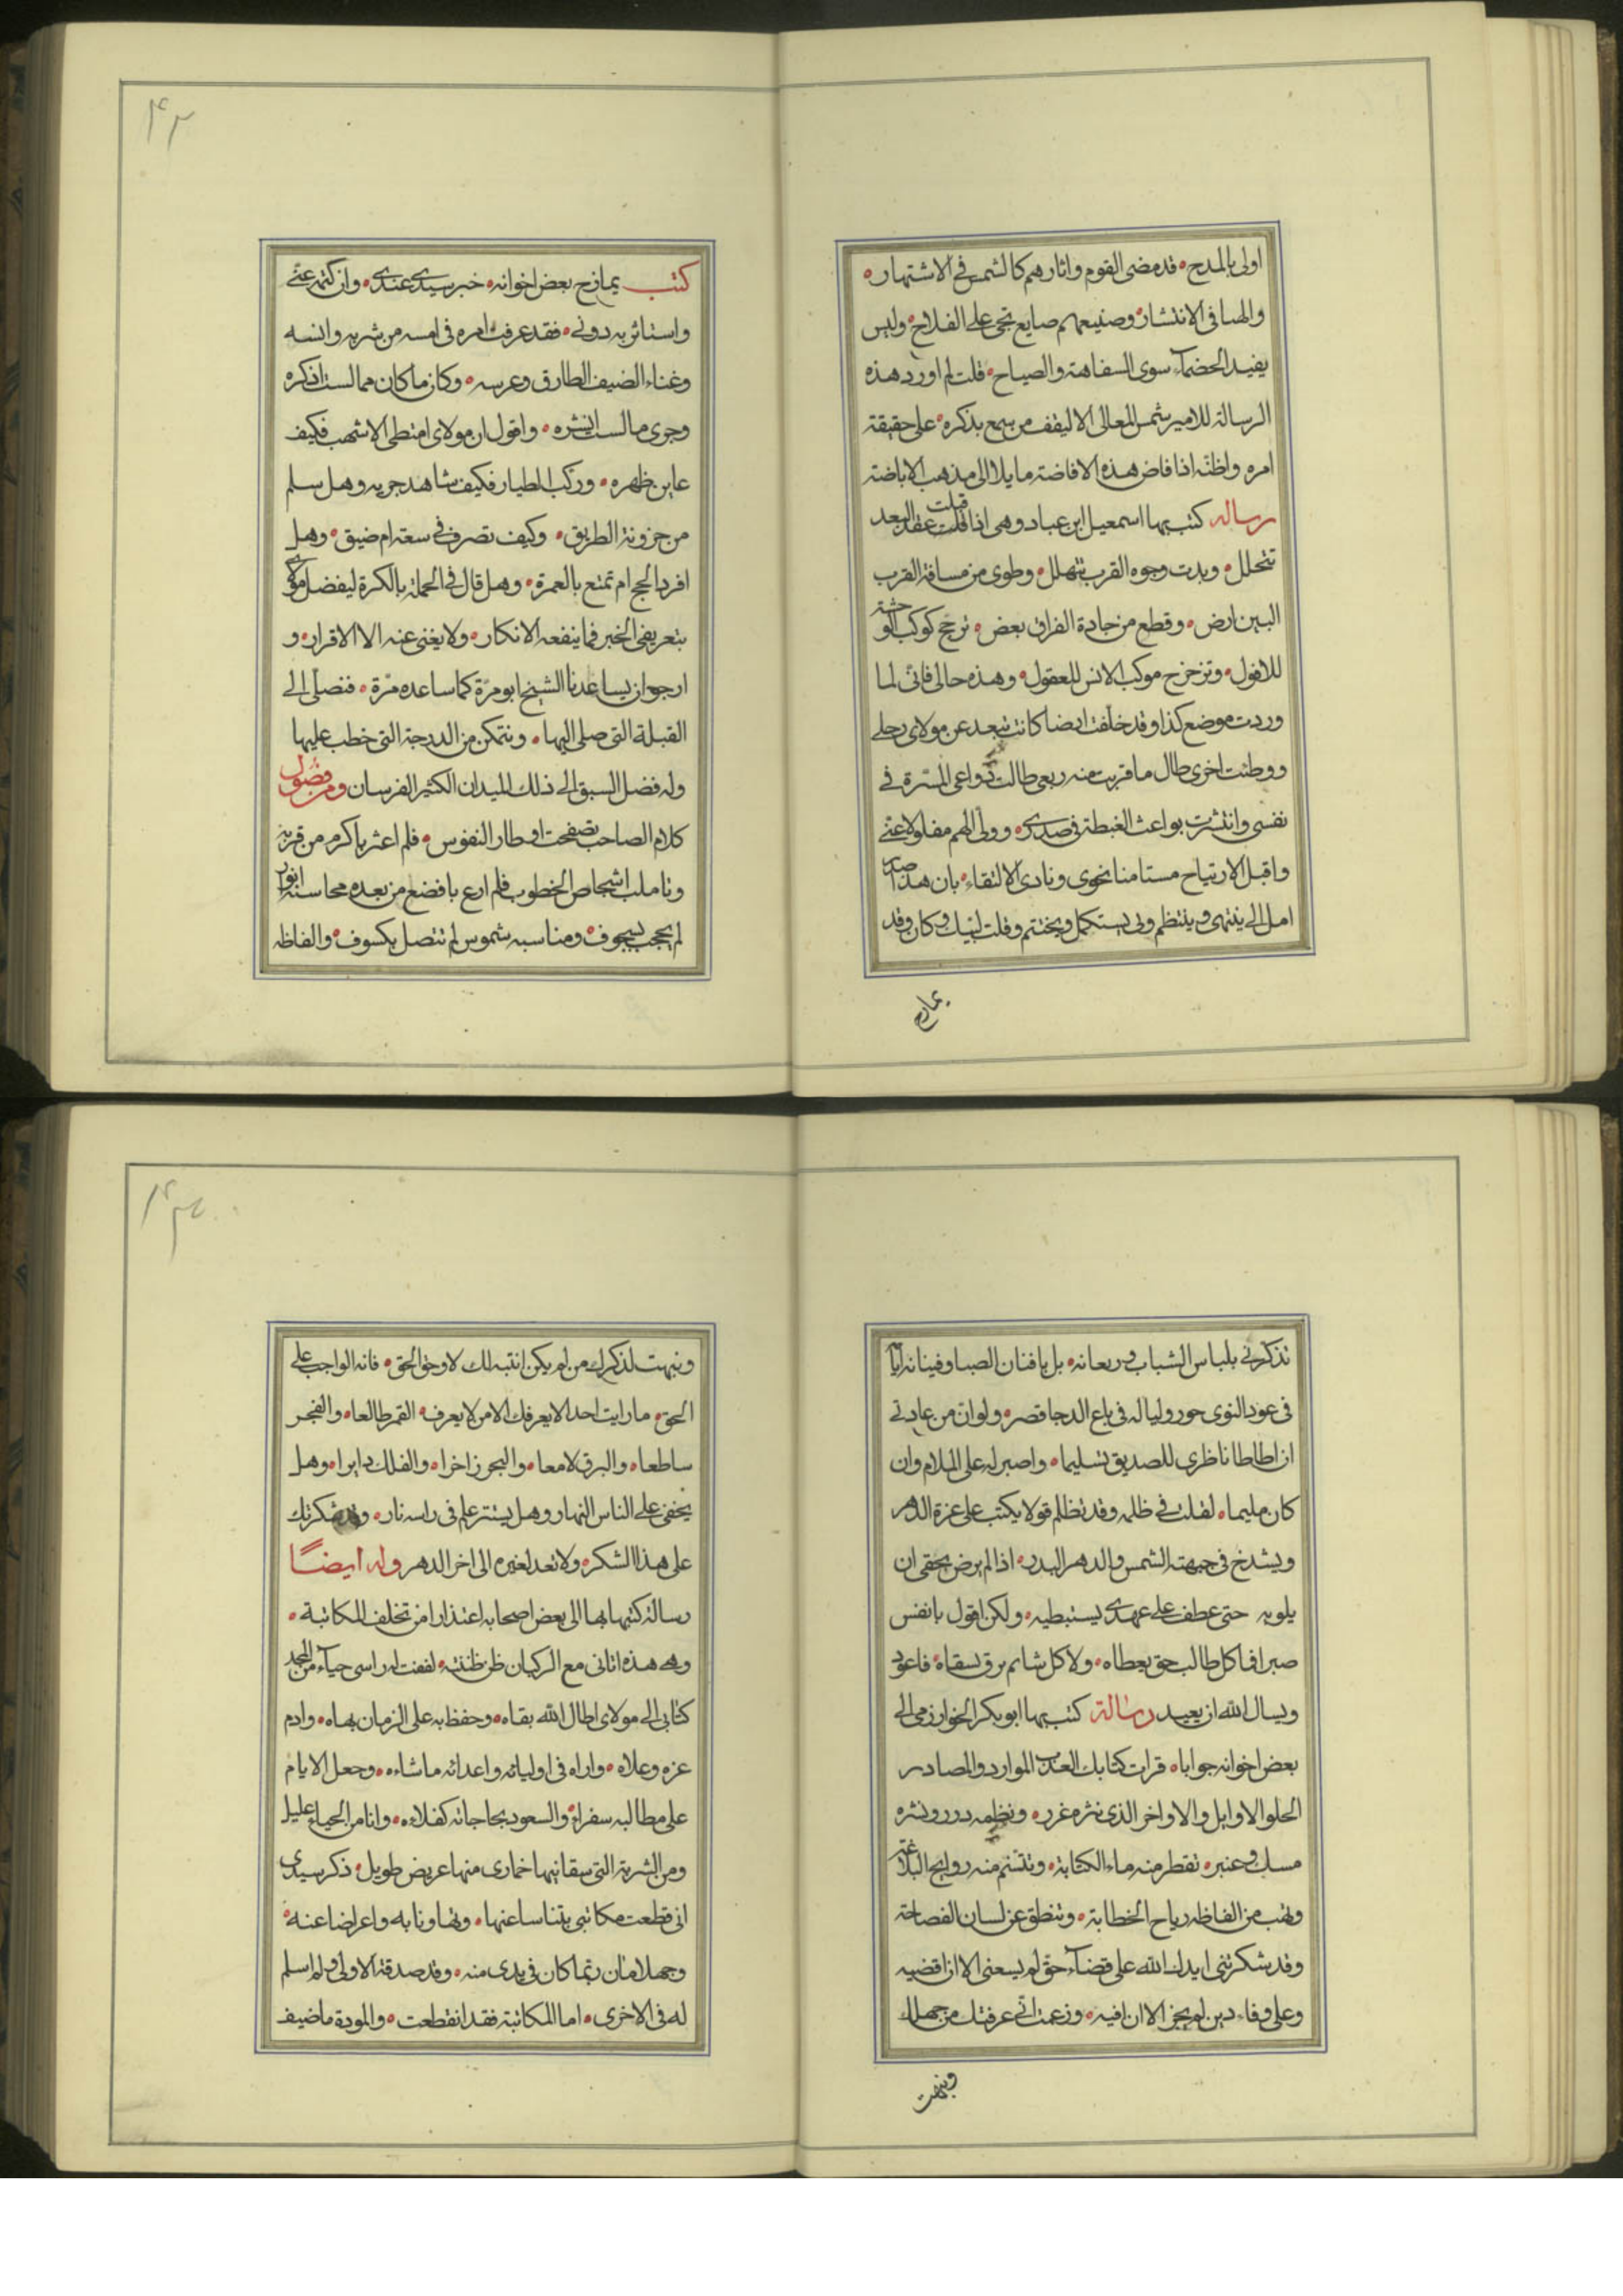 اولى بالمدح قد مضى القوم واثارهم كالشمس فى الاشتهار
والصبا فى الانتشار وصنيعهم صايع نجى على الفلاح وليس
يفيد الخصماء سوى السفاهة والصياح قلت لم اورد هذه
الرسالة للامير شمس المعالى الا ليقف من سمع بذكره على حقيقة
امره واظنه اذا فاض هذه الافاضة مايلا الى مذهب الاباضة
رساله كتب بها اسمعيل ابن عباد وهى اذا قلت قبلت عقد البعد
تتحلل وبدت وجوه القرب تتهلل وطوى من مسافة القرب
البين ارض وقطع من جادة الفراق بعض ترجح كوكب الوحشة
للافول وتزحزح موكب الانس للعقول وهذه حالى فانى لما
وردت موضع كذا وقد خلفت ارضا كانت تبعد عن مولاى رحلى
ووطئت اخرى طال ما قربت منه ربعى طالت دواعى المسرة فى
نفسى وانتشرت بواعث الغبطة فى صدرى وولى الهم مفلولا عنى
واقبل الارتياح مستامنا نحوى ونادى الالتقاء بان هذا صدر
امل الى ينتهى وينتظم ولى يستكمل ويختتم وقلت لبيك وكان وقد
يمازح
۴۲
كتب يمازح بعض اخوانه خبر سيدى عندى وان كتمه عنى
واستاثر به دونى فقد عرفت امره فى امسه من شربه وانسه
وغناء الضيف الطارق وعرسه وكان ما كان مما لست اذكره
وجرى ما لست انشره واقول ان مولاى امتطى الاشهب فكيف
عاين ظهره وركب الطيار فكيف شاهد جريه وهل سلم
من حزونة الطريق وكيف تصرف فى سعة ام ضيق وهل
افرد الحج ام تمتع بالعمرة وهل قال فى الحملة بالكرة ليفضل مولاى
بتعريفى الخبر فما ينفعه الانكار ولا يغنى عنه الا الاقرار و
ارجو ان يساعدنا الشيخ ابو مرة كما ساعده مرة فنصلى الى
القبلة التى صلى اليها ونتمكن من الدرجة التى خطب عليها
وله فضل السبق الى ذلك الميدان الكثير الفرسان ومن فصول
كلام الصاحب تصفحت اوطار النفوس فلم اعثر باكرم من قربة
وتاملت اشخاص الخطوب فلم ارع بافضع من بعده محاسنه انوار
لم يحجب بسجوف ومناسبه شموس لم تتصل بكسوف والفاظه
تذكرنى بلباس الشباب وريعانه بل بافنان الصبا وفينانه ايام
فى عود النوى حور ولياله فى باع الدجا قصر ولو ان من عادتى
ان اطاطا ناظرى للصديق تسليما واصبر له على الملام وان
كان مليما لقلت فى ظلمه وقد تظلم قولا يكتب على غرة الدهر
ويشدخ فى جبهته الشمس والدهر البدر اذا لم يرض بحقى ان
يلويه حتى عطف على عهدى يستبطيه ولكن اقول يا نفس
صبرا فما كل طالب حق يعطاه ولا كل شايم برق يسقاه فاعود
ويسال الله ان يعيد رسالة كتب بها ابو بكر الخوارزمى الى
بعض اخوانه جوابا قرات كتابك العذب الموارد والمصادر
الحلو الاوايل والاواخر الذى نثره غرر ونظمه درر ونشره
مسك وعنبر تقطر منه ماء الكتابة وتتنسم منه روايح البلاغة
وتهب من الفاظه رياح الخطابة وتنطق عن لسان الفصاحة
وقد شكرتنى ايدك الله على قضاء حق لم يسعنى الا ان اقضيه
وعلى وفاء دين لم يجز الا ان افيه وزعمت انى عرفتك من جهلك
ونبهت
۴۳
ونبهت لذكرك من لم يكن انتبه لك لا وحق الحق فانه الواجب على
الحق ما رايت احدا لا يعرفك الا من لا يعرف القمر طالعا والفجر
ساطعا والبرق لامعا والبحر زاخرا والفلك دايرا وهل
يخفى على الناس النهار وهل يستتر علم فى راسه نار وقد شكرتك
على هذا الشكر ولا تعد لغيره الى اخر الدهر وله ايضا
رسالة كتبها بها الى بعض اصحابه اعتذارا من تخلف المكاتبة
وهى هذه اتانى مع الركبان ظن ظننته لففت له راسى حياء من المجد
كتابى الى مولاى اطال الله بقاه وحفظ به على الزمان بهاه وادم
عزه وعلاه واراه فى اوليائه واعدائه ما شاءه وجعل الايام
على مطالبه سفراء والسعود بحاجاته كفلاءه وانا من الحياء عليل
ومن الشربة التى سقانيها خمارى منها عريض طويل ذكر سيدى
انى قطعت مكاتبى بتناساعنها وتهاونا به واعراضا عنه
وجهلا مان بما كان فى يدى منه وقد صدقته الاولى ولم اسلم
له فى الاخرى اما المكاتبة فقد انقطعت والمودة ما ضيف